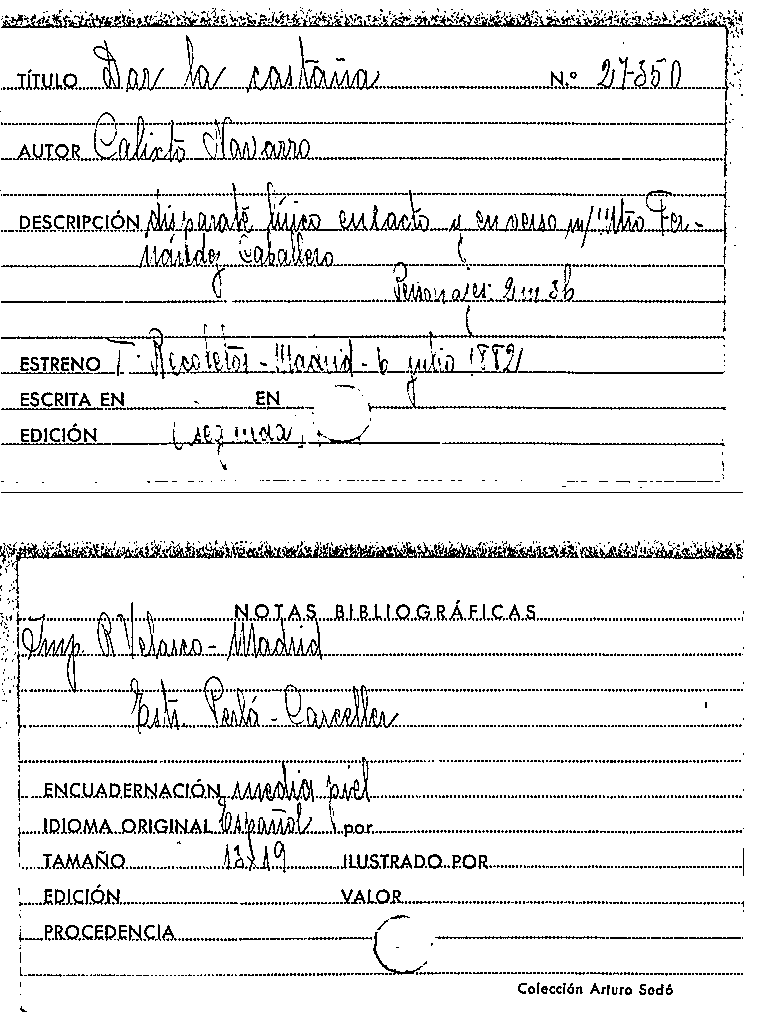 TÍTULO Dar la castaña N.º 27350
AUTOR Calixto Navarro
DESCRIPCIÓN disparate lírico en 1 acto y en verso m/ Mtro Fer-
nández Caballero
Personajes: 2m 3h
ESTRENO T. Recoletos - Madrid - 6 julio 1882
ESCRITA EN EN
EDICIÓN
NOTAS BIBLIOGRÁFICAS
Imp. R Velasco - Madrid
Estr. Perlá - Carceller
ENCUADERNACIÓN media piel
IDIOMA ORIGINAL Español por
TAMAÑO 13x19 ILUSTRADO POR
EDICIÓN VALOR
PROCEDENCIA
Colección Arturo Sedó